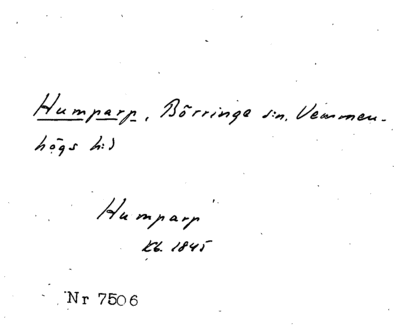 Humparp, Börringe s:n, Vemmen-
högs h:d
Humparp
Kb. 1845
Nr 7506